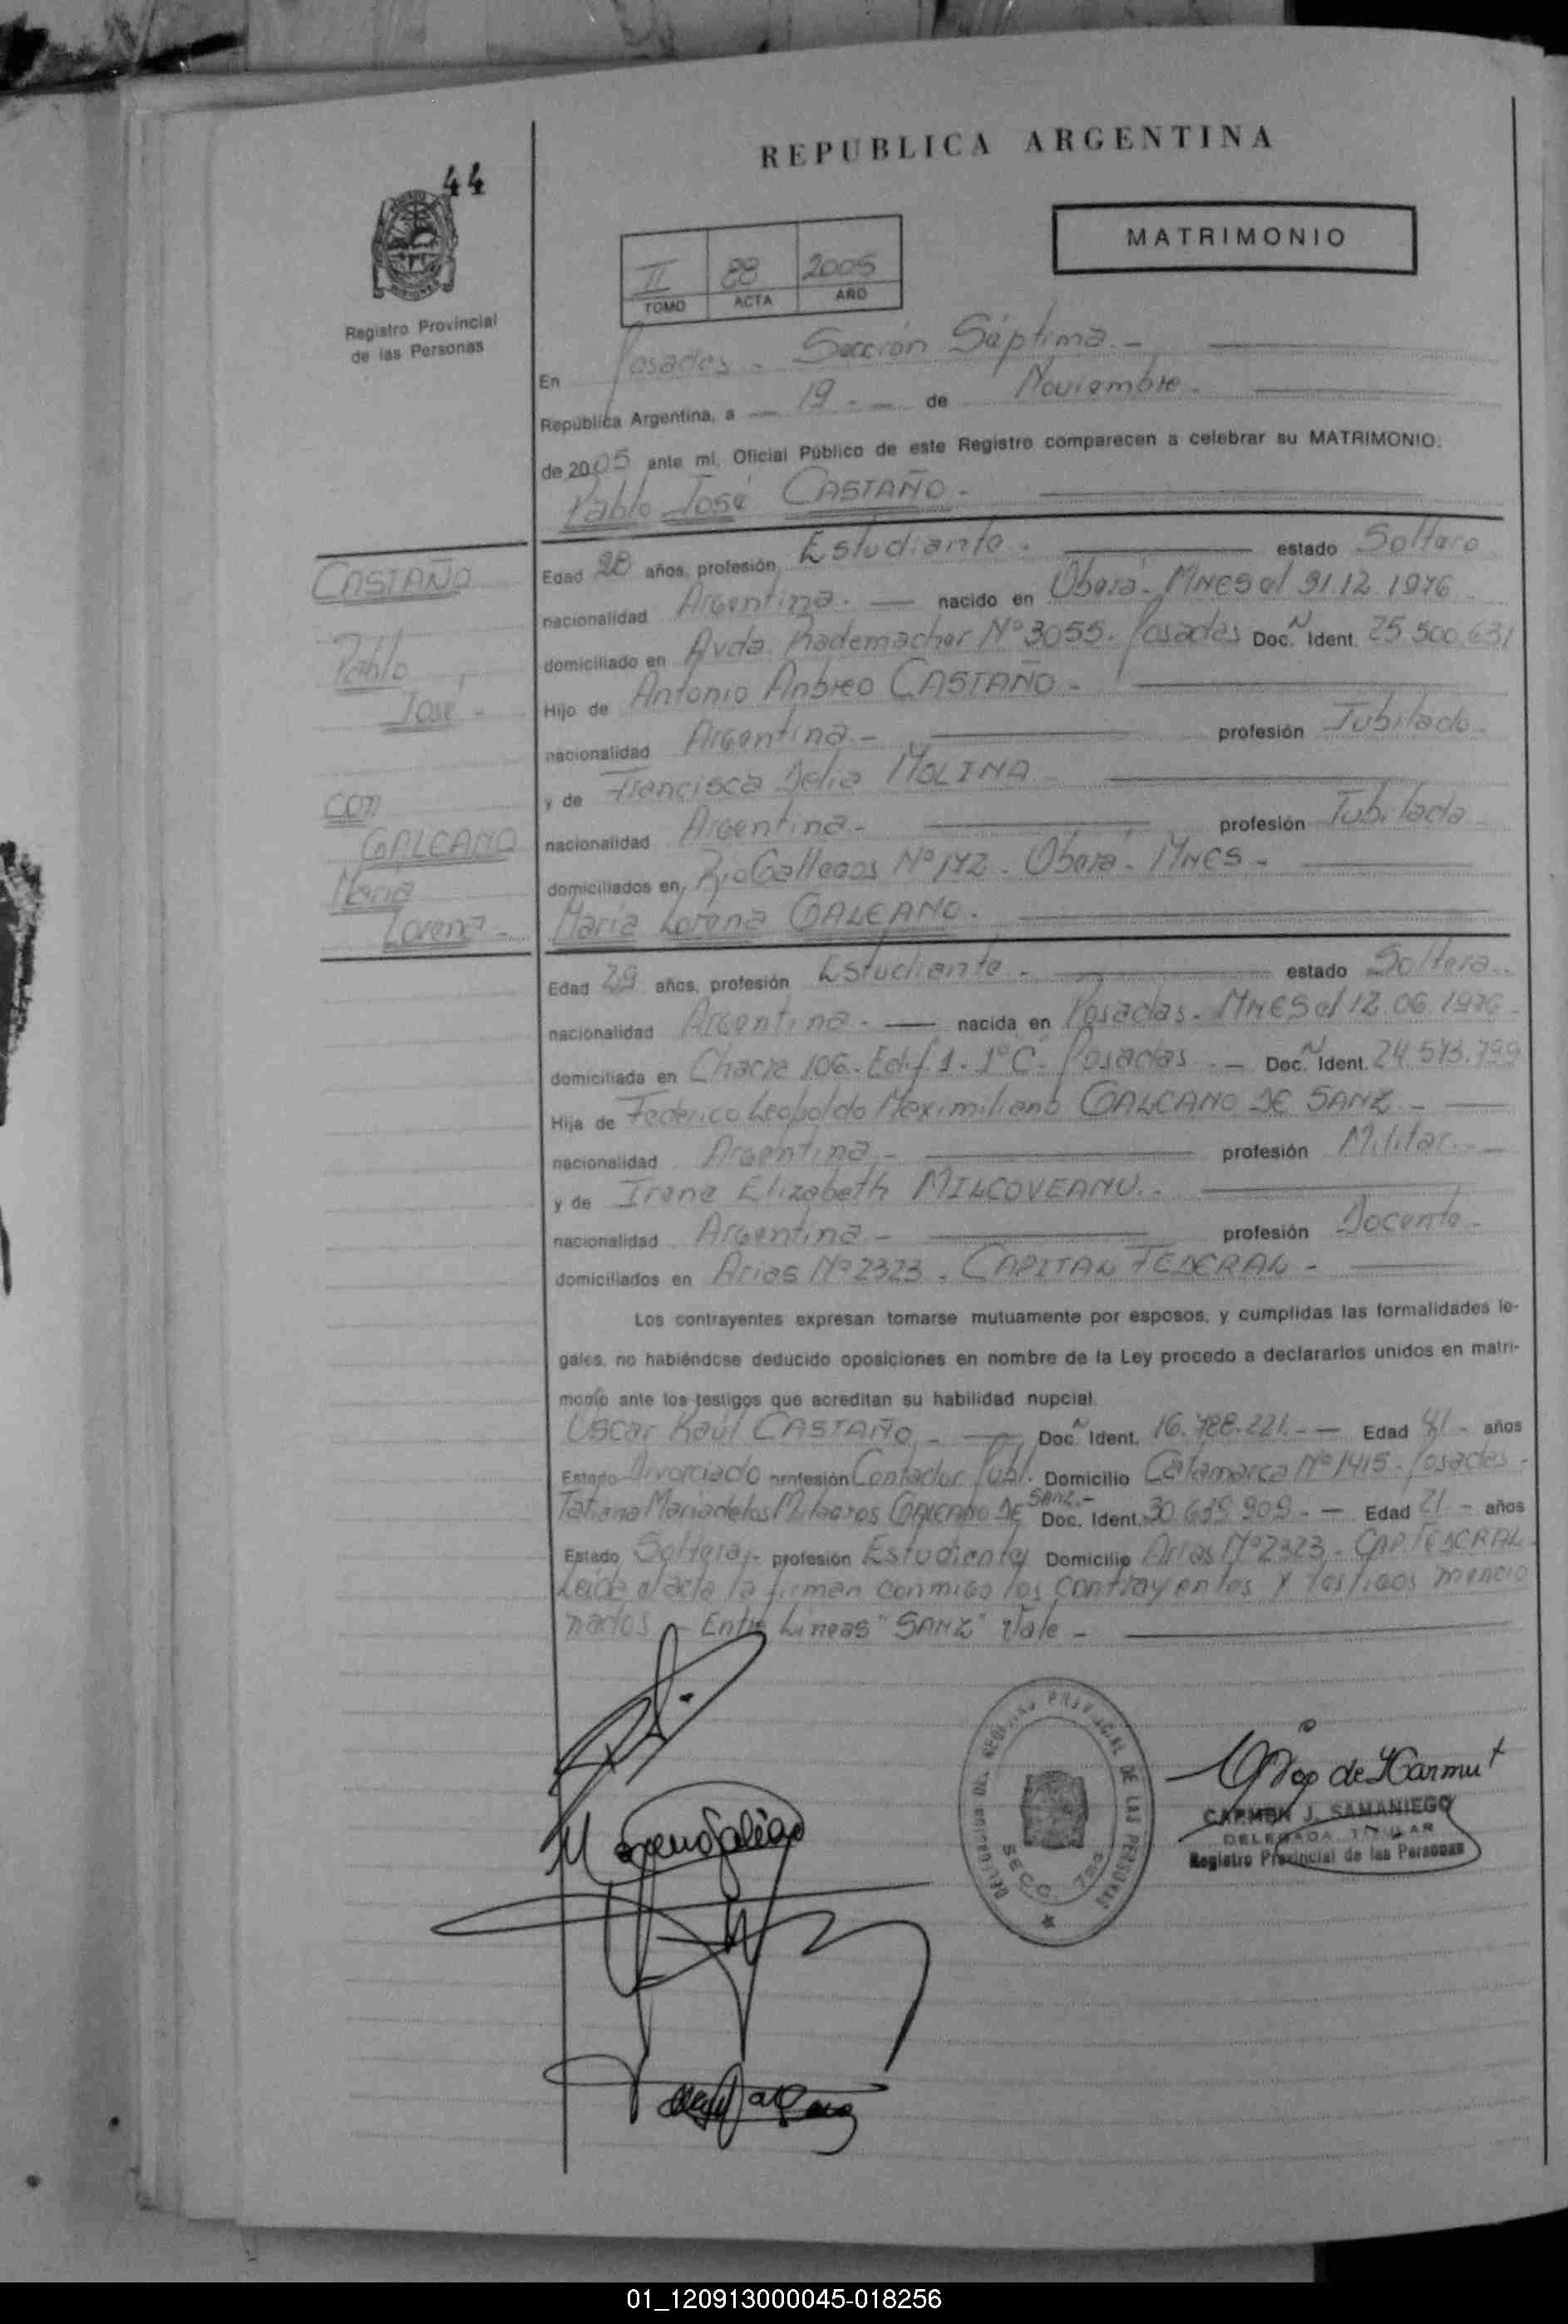 44
REPUBLICA ARGENTINA
MATRIMONIO
II 88 2005
TOMO ACTA AÑO
Registro Provincial
de las Personas
En Posadas - Sección Séptima. -
República Argentina, a 19 - de Noviembre -
de 2005 ante mi, Oficial Público de este Registro comparecen a celebrar su MATRIMONIO:
Pablo José CASTAÑO -
CASTAÑO
Pablo
José -
con
GALEANO
María
Lorena -
Edad 28 años, profesión Estudiante - estado Soltero
nacionalidad Argentina. - nacido en Oberá - MNES el 31.12.1976
domiciliado en Avda. Rademacher Nº 3055 - Posadas Doc. N Ident. 25.500.631
Hijo de Antonio CASTAÑO -
nacionalidad Argentina - profesión Jubilado -
y de Francisca Delia MOLINA
nacionalidad Argentina - profesión Jubilada
domiciliados en Rio Gallegos Nº 172 - Oberá - MNES -
María Lorena GALEANO -
Edad 29 años, profesión Estudiante - estado Soltera
nacionalidad Argentina - nacida en Posadas - MNES el 12.06.1976
domiciliada en Chacra 106 - Edif. 1 - 1º C - Posadas - Doc. N Ident. 24.573.799
Hija de Federico Leopoldo Maximiliano GALEANO DE SANZ -
nacionalidad Argentina - profesión Militar -
y de Irene Elizabeth MILCOVEANU -
nacionalidad Argentina - profesión Docente -
domiciliados en Arias Nº 2323 - CAPITAN FEDERAL -
Los contrayentes expresan tomarse mutuamente por esposos, y cumplidas las formalidades le-
gales, no habiéndose deducido oposiciones en nombre de la Ley procedo a declararlos unidos en matri-
monio ante los testigos que acreditan su habilidad nupcial.
Oscar Raúl CASTAÑO - Doc. N Ident. 16.788.221 - Edad 41 - años
Estado Divorciado profesión Contador Publ. Domicilio Catamarca Nº 1415 - Posadas -
Tatiana María de los Milagros GALEANO DE SANZ - Doc. Ident. 30.639.909 - Edad 21 - años
Estado Soltera - profesión Estudiante Domicilio Arias Nº 2323 - CAP. FEDERAL
Leída el acta la firman conmigo los contrayentes y testigos mencio
nados - Entre Lineas "SANZ" Vale -
DELEGACION DEL REGISTRO PROVINCIAL DE LAS PERSONAS
SECC. 7ma
de Karmut
CARMEN J. SAMANIEGO
DELEGADA TITULAR
Registro Provincial de las Personas
01_120913000045-018256